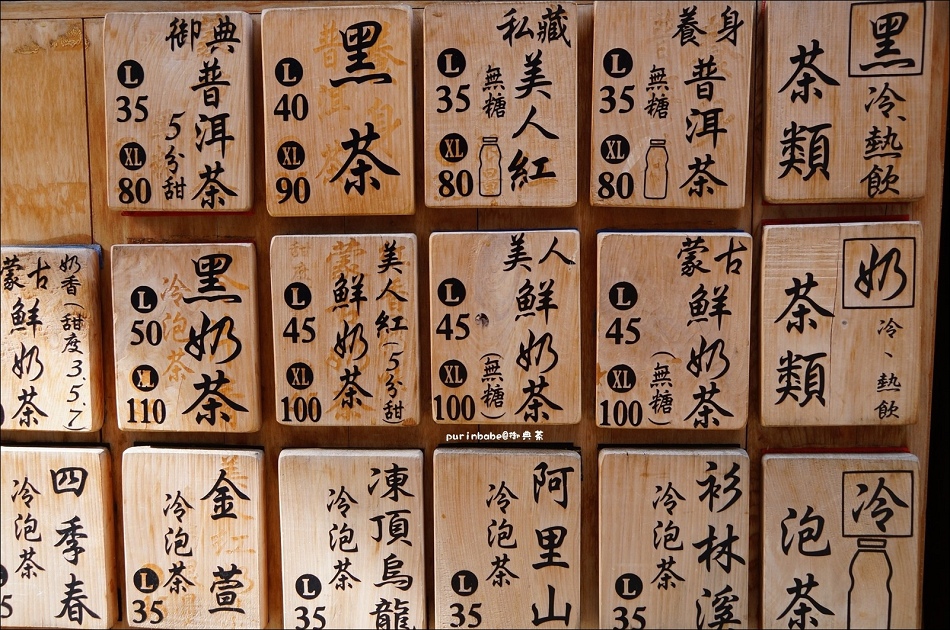 黑
茶類
冷、熱飲
養身
普洱茶
無糖
L
35
XL
80
私藏
美人紅
無糖
L
35
XL
80
黑茶
L
40
XL
90
御典
普洱茶
5分甜
L
35
XL
80
奶
茶類
冷、熱飲
蒙古
鮮奶茶
(無糖)
L
45
XL
100
美人
鮮奶茶
(無糖)
L
45
XL
100
美人紅(5分甜
鮮奶茶
L
45
XL
100
黑奶茶
冷泡茶
L
50
XL
110
奶香(甜度3.5.7)
蒙古
鮮奶茶
purinbabe@御典茶
冷
泡茶
杉林溪
冷泡茶
L
35
阿里山
冷泡茶
L
35
凍頂烏龍
冷泡茶
L
35
金萱
冷泡茶
L
35
四季春
冷泡茶
5